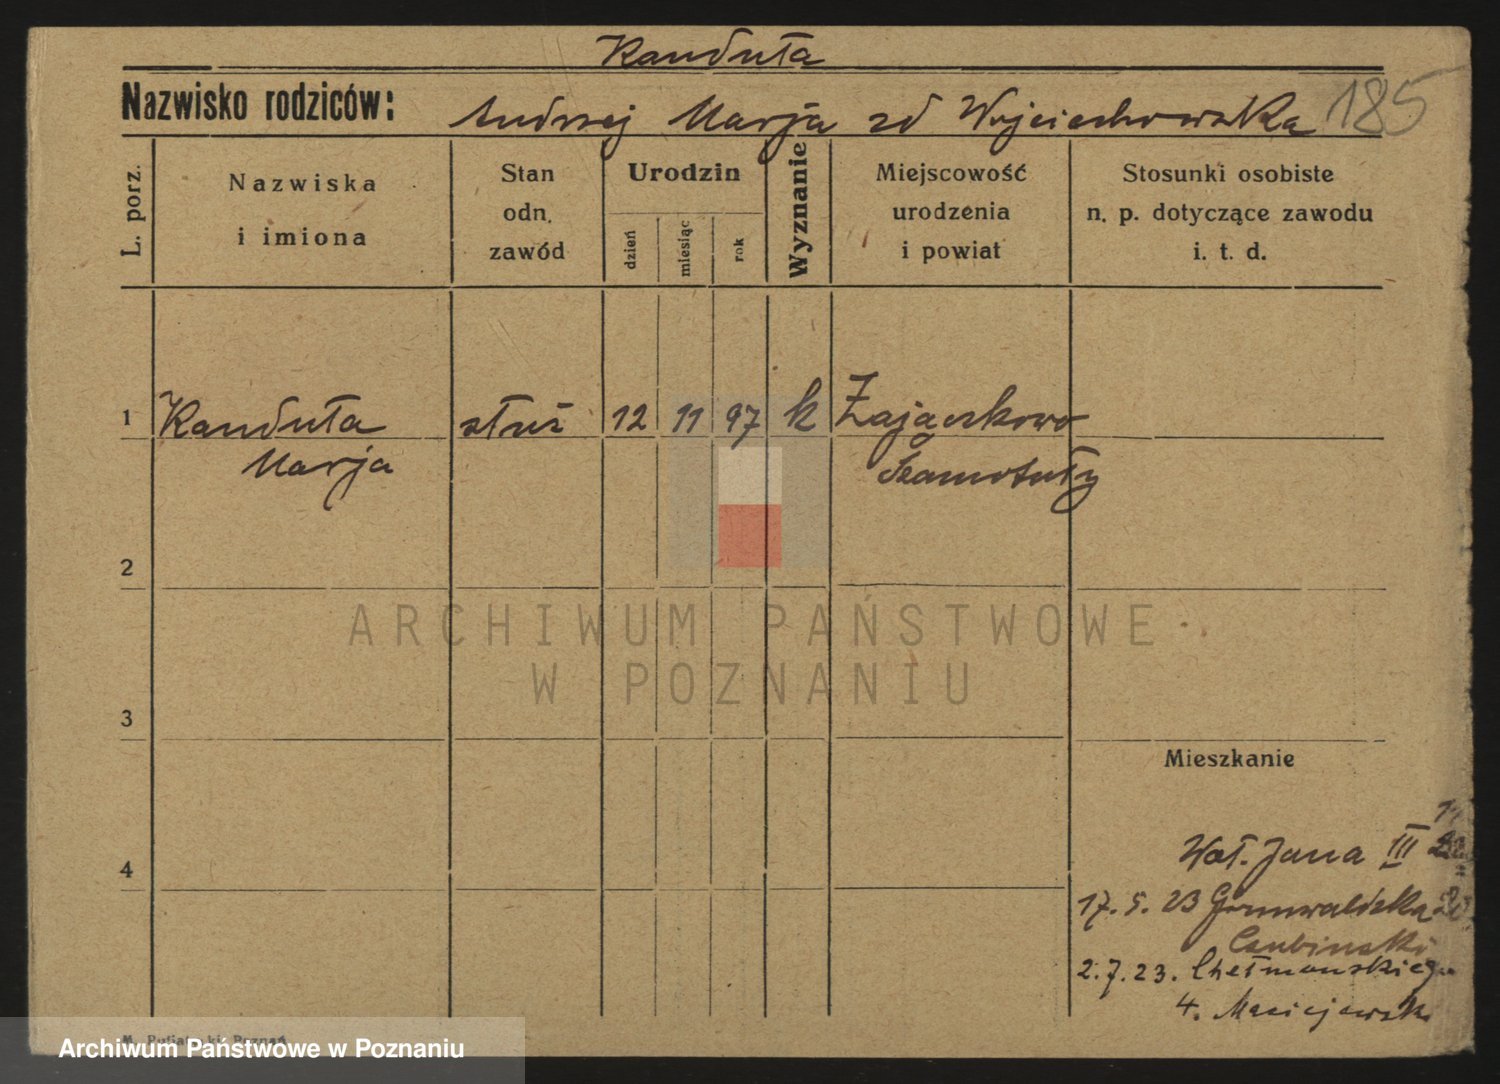 Kanduła
Nazwisko rodziców:
Andrzej Marja zd Wojciechowska 185
L. porz.
Nazwiska
i imiona
Stan
odn.
zawód
Urodzin
dzień
miesiąc
rok
Wyznanie
Miejscowość
urodzenia
i powiat
Stosunki osobiste
n. p. dotyczące zawodu
i. t. d.
1 Kanduła służ 12 11 97 k Zajączkowo
Marja Szamotuły
2
ARCHIWUM PAŃSTWOWE
W POZNANIU
3
Mieszkanie
4
Wał. Jana III
17. 5. 23 Grunwaldzka
Czubinski
2. 7. 23. Chełmonskiego
4. Maciejewski
Archiwum Państwowe w Poznaniu